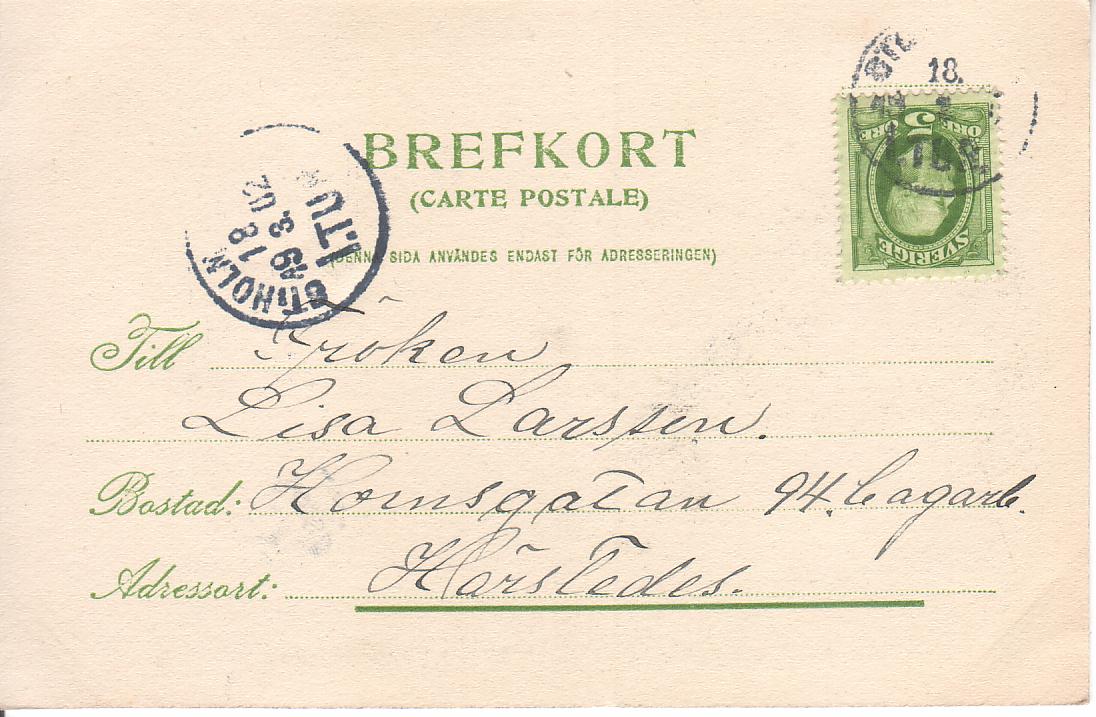 BREFKORT
(CARTE POSTALE)
(DENNA SIDA ANVÄNDES ENDAST FÖR ADRESSERINGEN)
5
ÖRE ÖRE
SVERIGE
18.
STHOLM
1 8 02
19 3.
1.TUR
Till Fröken
Lisa Larsson.
Bostad: Hornsgatan 94.
Adressort: Härstedes.